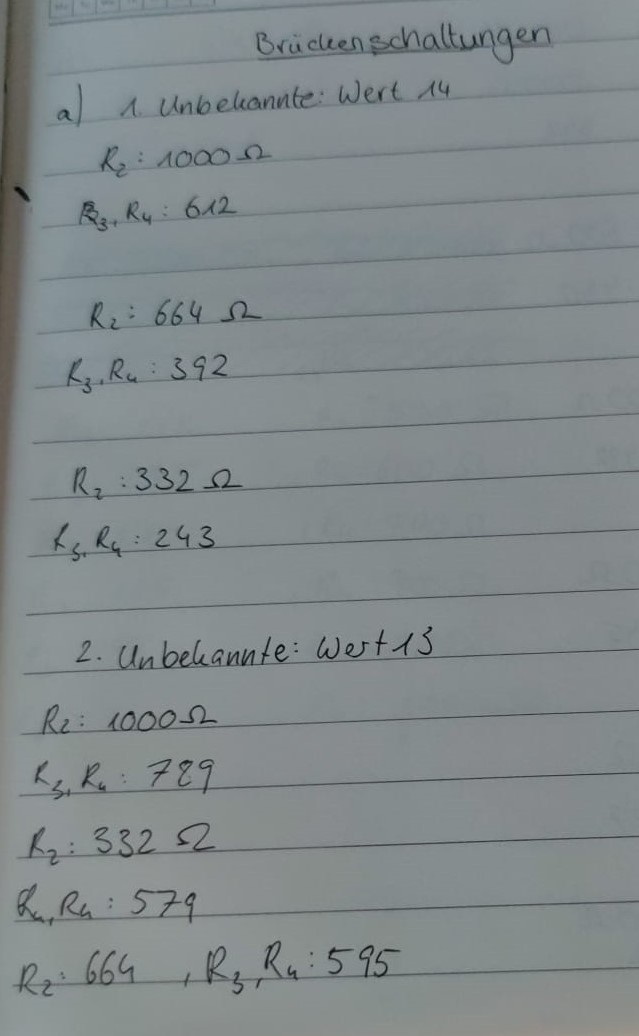 Brückenschaltungen
a) 1. Unbekannte: Wert 14
R2: 1000 Ω
R3, R4: 612
R2: 664 Ω
R3, R4: 392
R2: 332 Ω
R3, R4: 243
2. Unbekannte: Wert 13
R2: 1000 Ω
R3, R4: 789
R2: 332 Ω
R4, R4: 579
R2: 664, R3, R4: 595